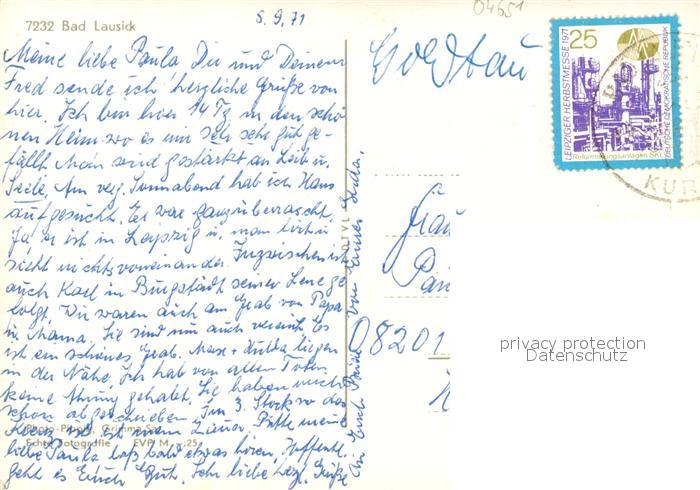 7232 Bad Lausick
5.9.71
04651
Meine liebe Paula Dir und Deinem
Fred sende ich herzliche Grüße von
hier. Ich bin hier 14 Tg. in den schö-
nen Heim wo es mir sehr sehr gut ge-
fällt. Man wird gestärkt an Leib u.
Seele. Am verg. Sonnabend hab ich Hans
aufgesucht. Er war ganz überrascht.
Ja, er ist in Leipzig u. man hört u
sieht nichts voneinander. Inzwischen is
auch Karl in Burgstädt seiner Lene ge
folgt. Wir waren auch am Grab von Papa
u. Mama. Sie sind nun auch vereint. Es
ist ein schönes Grab. Max + Hulda liegen
in der Nähe. Ich hab von allen Toten
keine Ahnung gehabt. Sie haben mich
schon abgeschrieben. Im 3. Stock so das
Kreuz
liebe Paula laß bald etwas hören. Hoffentl.
geht es Euch Gut. Sehr liebe herzl. Grüße
An Euch Beide von Eurer
Photo- Grimma Sa.
Echte Fotografie EVP M -.25
Goldtau
Frau
08201
LEIPZIGER HERBSTMESSE 1971
25
Reformierungsanlagen SKL
DEUTSCHE DEMOKRATISCHE REPUBLIK
KUR
privacy protection
Datenschutz